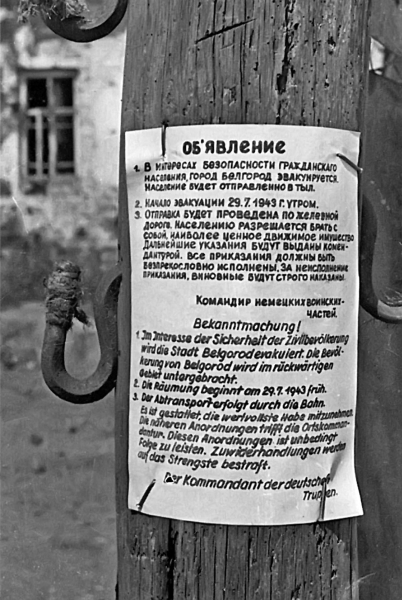 ОБ'ЯВЛЕНИЕ
1. В ИНТЕРЕСАХ БЕЗОПАСНОСТИ ГРАЖДАНСКАГО
НАСЕЛЕНИЯ, ГОРОД БЕЛГОРОД ЭВАКУИРУЕТСЯ.
НАСЕЛЕНИЕ БУДЕТ ОТПРАВЛЕННО В ТЫЛ.
2. НАЧАЛО ЭВАКУАЦИИ 29.7.1943 Г. УТРОМ.
3. ОТПРАВКА БУДЕТ ПРОВЕДЕНА ПО ЖЕЛЕЗНОЙ
ДОРОГЕ. НАСЕЛЕНИЮ РАЗРЕШАЕТСЯ БРАТЬ С
СОБОЙ, НАИБОЛЕЕ ЦЕННОЕ ДВИЖИМОЕ ИМУЩЕСТВО
ДАЛЬНЕЙШИЕ УКАЗАНИЯ БУДУТ ВЫДАНЫ КОМЕН-
ДАНТУРОЙ. ВСЕ ПРИКАЗАНИЯ ДОЛЖНЫ БЫТЬ
БЕСПРЕКОСЛОВНО ИСПОЛНЕНЫ, ЗА НЕИСПОЛНЕНИЕ
ПРИКАЗАНИЯ, ВИНОВНЫЕ БУДУТ СТРОГО НАКАЗАНЫ.
КОМАНДИР НЕМЕЦКИХ ВОИНСКИХ-
ЧАСТЕЙ.
Bekanntmachung!
1. Im Interesse der Sicherheit der Zivilbevölkerung
wird die Stadt Belgorod evakuiert. Die Bevöl-
kerung von Belgorod wird im rückwärtigen
Gebiet untergebracht.
2. Die Räumung beginnt am 29.7.1943 früh.
3. Der Abtransport erfolgt durch die Bahn.
Es ist gestattet, die wertvollste Habe mitzunehmen.
Die näheren Anordnungen trifft die Ortskomman-
dantur. Diesen Anordnungen ist unbedingt
Folge zu leisten. Zuwiderhandlungen werden
auf das Strengste bestraft.
Der Kommandant der deutschen
Truppen.